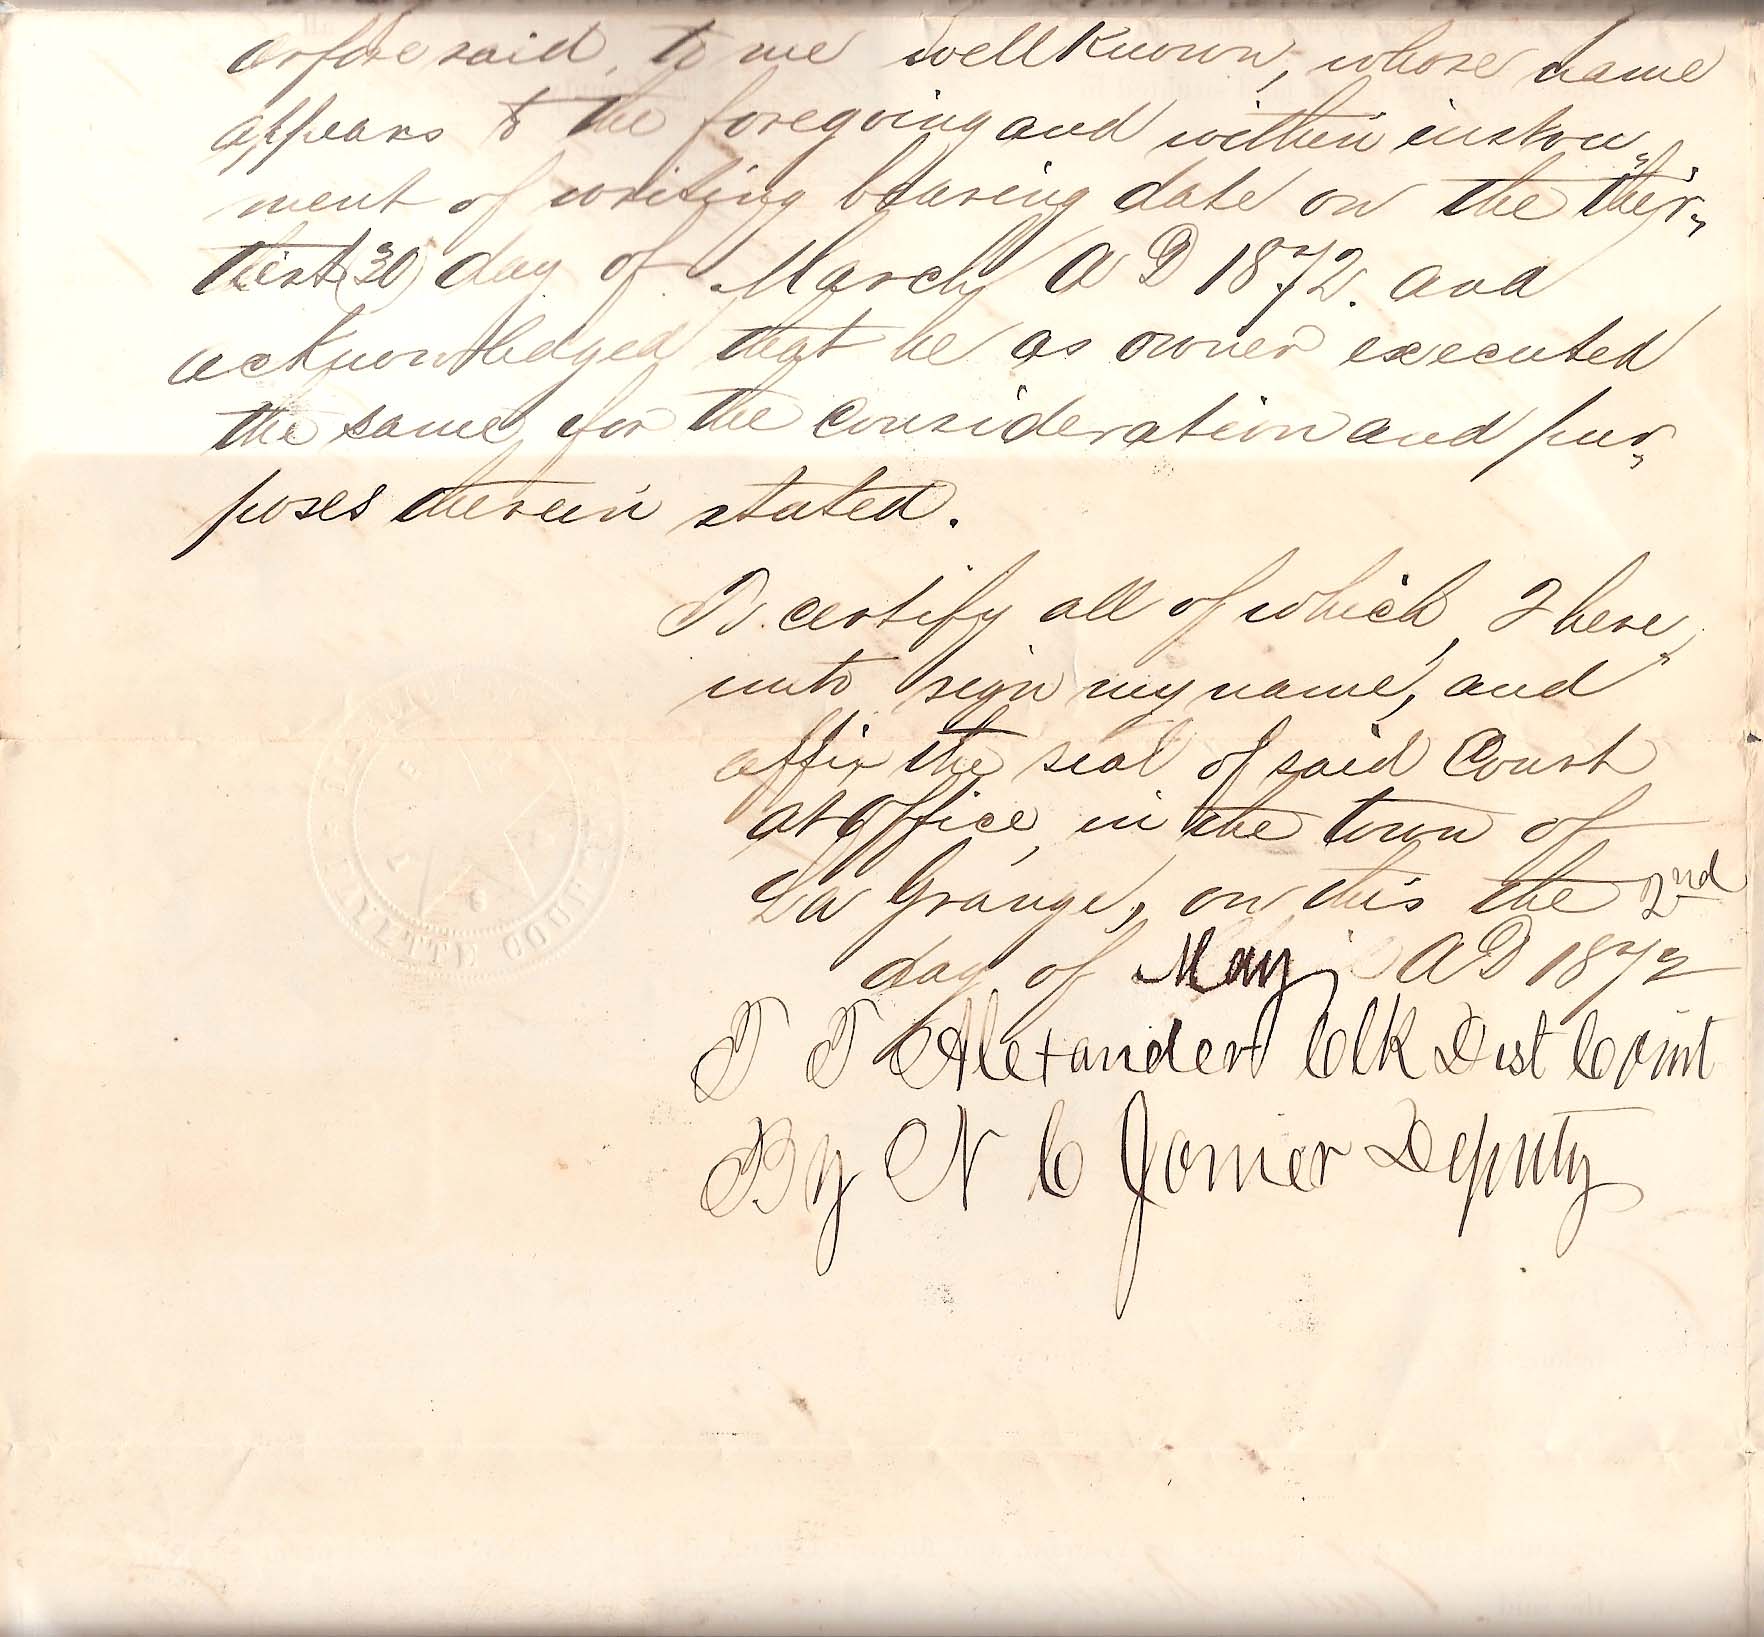 aforesaid, to me well Known, whose name
appears to the foregoing and within instru„
ment of writing bearing date on the thir„
tieth (30) day of March A D 1872. and
acknowledged that he as owner executed
the same for the consideration and pur„
poses therein stated.
To certify all of which, I here„
unto sign my name, and
affix the seal of said Court
at office, in the town of
La Grange, on this the 2nd
day of May A D 1872
T T Alexander Clk Dist Court
By N C Jomer Deputy
FAYETTE COUNTY